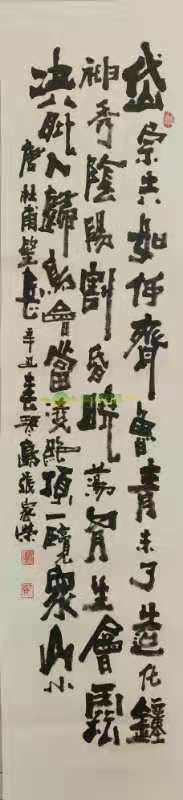 岱宗夫如何齊魯青未了造化鍾
神秀陰陽割昏曉蕩胷生曾雲
決眥入歸鳥會當凌絕頂一覽眾山小
唐杜甫望岳辛丑春琴島張家榮